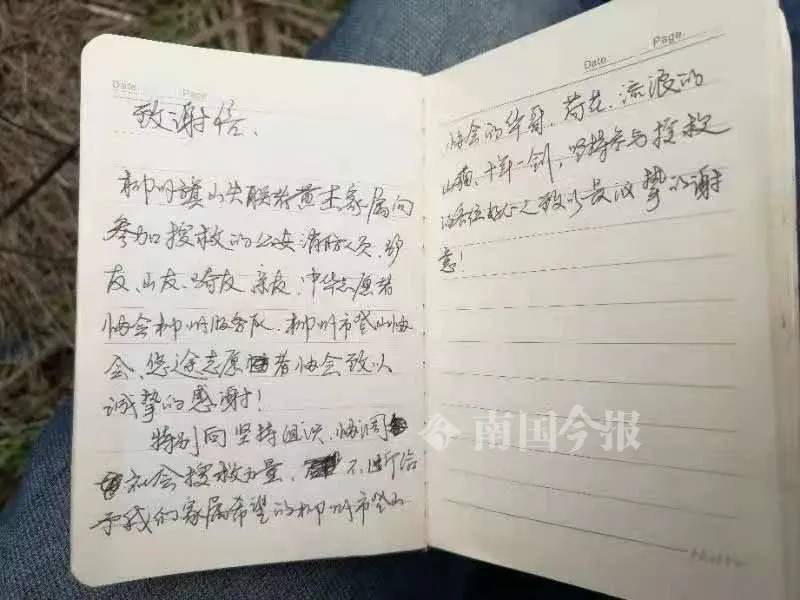 Date. Page
致谢信、
柳州旗山失联者黄土家属向
参加搜救的公安消防人员、驴
友、山友、骑友、亲友、中华志愿者
协会柳州服务队、柳州市登山协
会、悠途志愿者协会致以
诚挚的感谢！
特别向坚持组织、协调
社会搜救力量、不断给
予我们家属希望的柳州市登山
Date. Page.
协会的华哥、荷花、流浪的
山猫、十年一剑，坚持参与搜救
的各位好心人致以最诚挚的谢
意！
南国今报